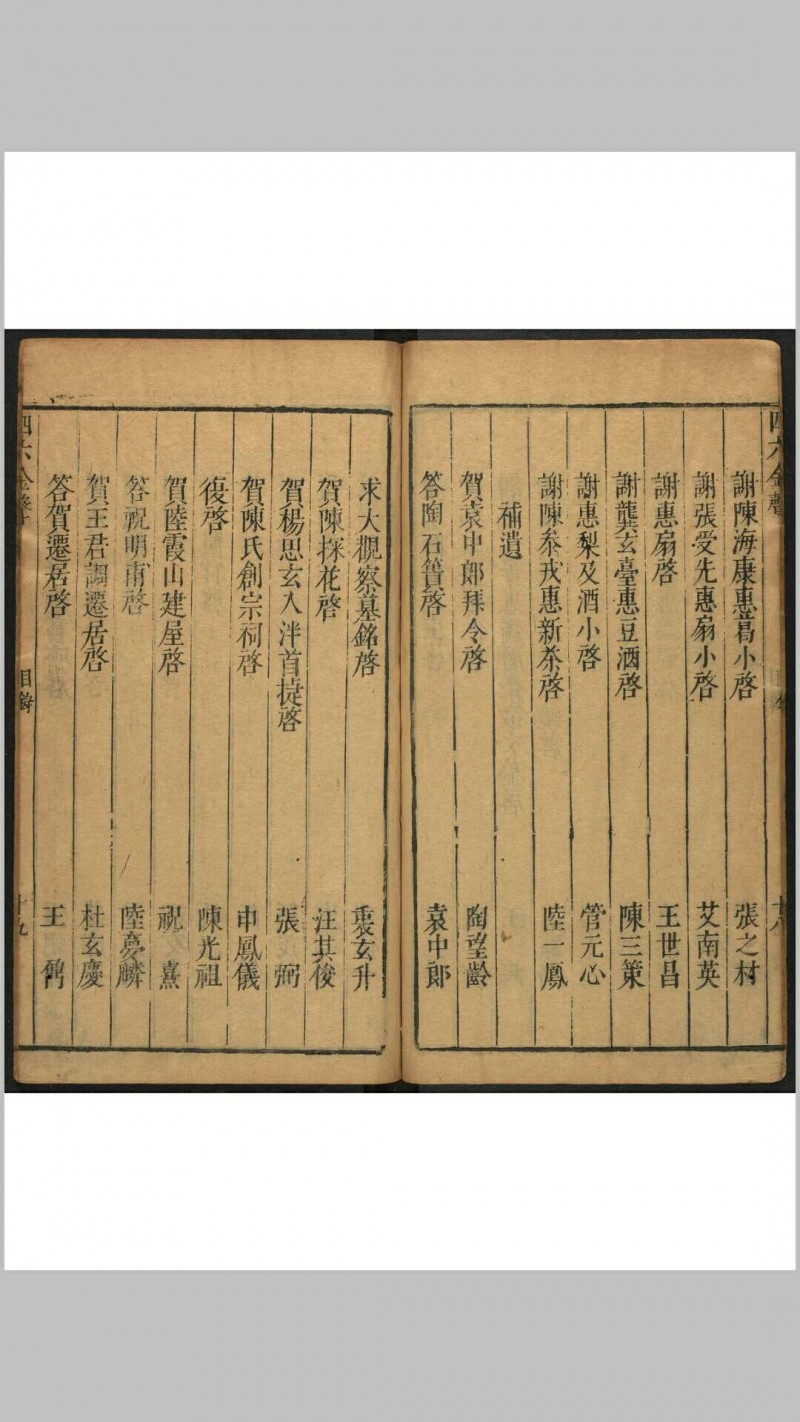 謝陳海康惠葛小啓 張之村
謝張受先惠扇小啓 艾南英
謝惠扇啓 王世昌
謝龔玄臺惠豆酒啓 陳三策
謝惠梨及酒小啓 管元心
謝陳叅戎惠新茶啓 陸一鳳
補遺
賀袁中郎拜令啓 陶望齡
答陶石簣啓 袁中郎
求大觀察墓銘啓 裴玄升
賀陳探花啓 汪其俊
賀楊思玄入泮首㨗啓 張弼
賀陳氏創宗祠啓 申鳳儀
復啓 陳光祖
賀陸霞山建屋啓 祝熹
答祝明甫啓 陸夢麟
賀王君調遷居啓 杜玄慶
答賀遷居啓 王鸧
四六金聲 目錄 十九